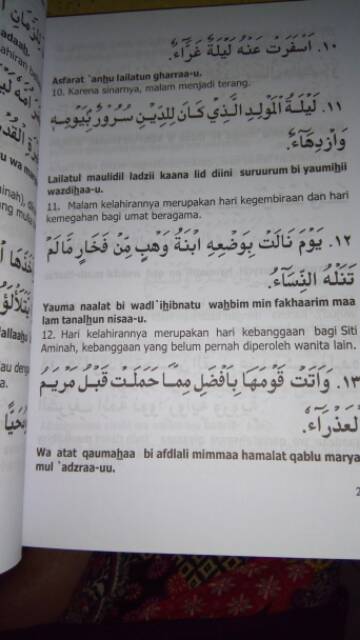 ١٠. اَسْفَرَتْ عَنْهُ لَيْلَةٌ غَرَّآءُ.
Asfarat `anhu lailatun gharraa-u.
10. Karena sinarnya, malam menjadi terang.
١١. لَيْلَةُ الْمَوْلِدِ الَّذِي كَانَ لِلدِّيْنِ سُرُوْرٌ بِيَوْمِهِ
وَازْدِهَآءُ.
Lailatul maulidil ladzii kaana lid diini suruurum bi yaumihii
wazdihaa-u.
11. Malam kelahirannya merupakan hari kegembiraan dan hari
kemegahan bagi umat beragama.
١٢. يَوْمَ نَالَتْ بِوَضْعِهِ ابْنَةُ وَهْبٍ مِنْ فَخَارٍ مَالَمْ
تَنَلْهُ النِّسَآءُ.
Yauma naalat bi wadl`ihibnatu wahbim min fakhaarim maa
lam tanalhun nisaa-u.
12. Hari kelahirannya merupakan hari kebanggaan bagi Siti
Aminah, kebanggaan yang belum pernah diperoleh wanita lain.
١٣. وَاَتَتْ قَوْمَهَا بِاَفْضَلَ مِمَّا حَمَلَتْ قَبْلُ مَرْيَمُ
الْعَذْرَآءُ.
Wa atat qaumahaa bi afdlali mimmaa hamalat qablu marya
mul `adzraa-uu.